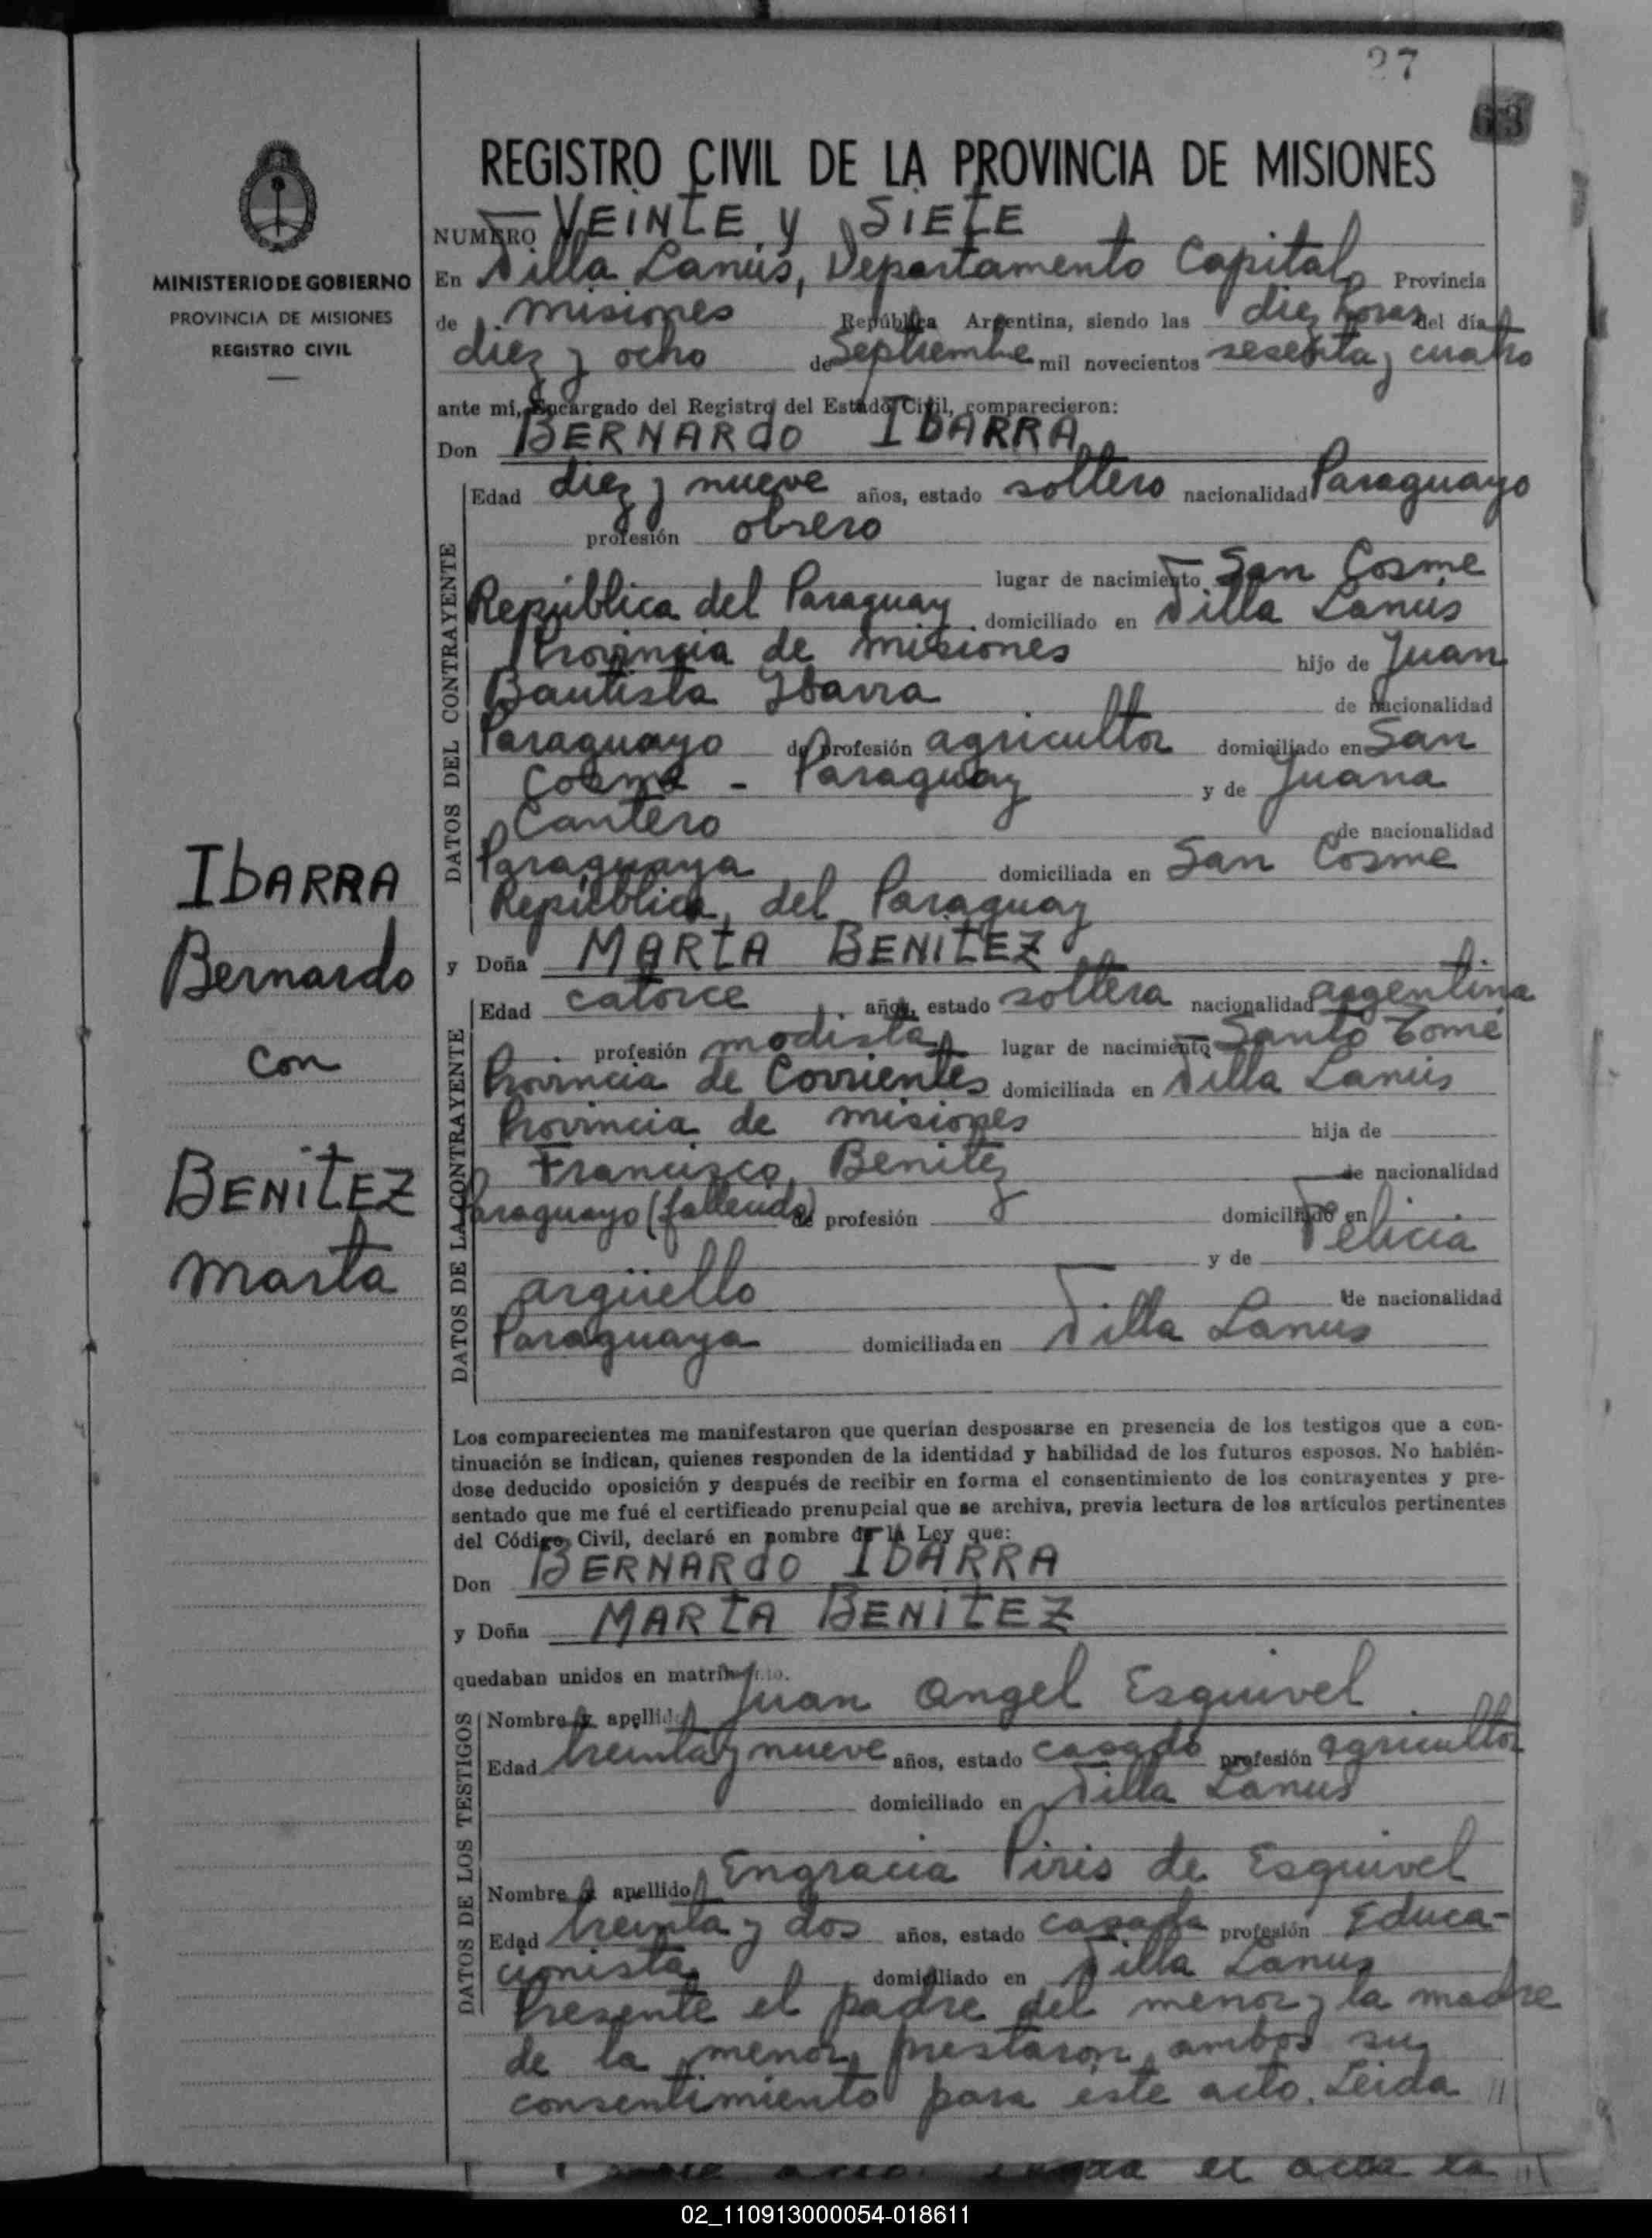 27
63
REGISTRO CIVIL DE LA PROVINCIA DE MISIONES
MINISTERIO DE GOBIERNO
PROVINCIA DE MISIONES
REGISTRO CIVIL
NUMERO VEINTE y SIETE
En Villa Lanús, Departamento Capital, Provincia
de misiones República Argentina, siendo las diez horas del día
diez y ocho de Septiembre mil novecientos sesenta y cuatro
ante mí, Encargado del Registro del Estado Civil, comparecieron:
Don BERNARDO IBARRA
DATOS DEL CONTRAYENTE
Edad diez y nueve años, estado soltero nacionalidad Paraguayo
profesión obrero
lugar de nacimiento San Cosme
República del Paraguay domiciliado en Villa Lanús
Provincia de misiones hijo de Juan
Bautista Ibarra de nacionalidad
Paraguayo de profesión agricultor domiciliado en San
Cosme - Paraguay y de Juana
Cantero de nacionalidad
Paraguaya domiciliada en San Cosme
República del Paraguay
IBARRA
Bernardo
con
BENITEZ
Marta
y Doña MARTA BENITEZ
DATOS DE LA CONTRAYENTE
Edad catorce años, estado soltera nacionalidad argentina
profesión modista lugar de nacimiento Santo Tomé
Provincia de Corrientes domiciliada en Villa Lanús
Provincia de misiones hija de
Francisco Benitez de nacionalidad
Paraguayo (fallecido) de profesión domiciliado en
y de Felicia
argüello de nacionalidad
Paraguaya domiciliada en Villa Lanus
Los comparecientes me manifestaron que querían desposarse en presencia de los testigos que a con-
tinuación se indican, quienes responden de la identidad y habilidad de los futuros esposos. No habién-
dose deducido oposición y después de recibir en forma el consentimiento de los contrayentes y pre-
sentado que me fué el certificado prenupcial que se archiva, previa lectura de los artículos pertinentes
del Código Civil, declaré en nombre de la Ley que:
Don BERNARDO IBARRA
y Doña MARTA BENITEZ
quedaban unidos en matrimonio.
DATOS DE LOS TESTIGOS
Nombre y apellido Juan Angel Esquivel
Edad treinta y nueve años, estado casado profesión agricultor
domiciliado en Villa Lanus
Nombre y apellido Engracia Piris de Esquivel
Edad treinta y dos años, estado casada profesión Educa-
cionista domiciliado en Villa Lanus
Presente el padre del menor y la madre
de la menor, prestaron ambos su
consentimiento para este acto. Leida //
02_110913000054-018611